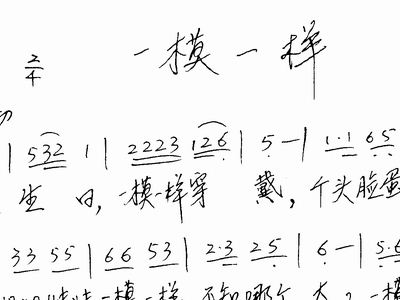 一模一样
2/4
| 532 1 | 22223 126 | 5 — | 1·1 65
生 日, 一模一样穿 戴, 个头脸蛋
33 55 | 66 53 | 2·3 25 | 6 — | 5·6
一模一样 不知哪个 大? 一模